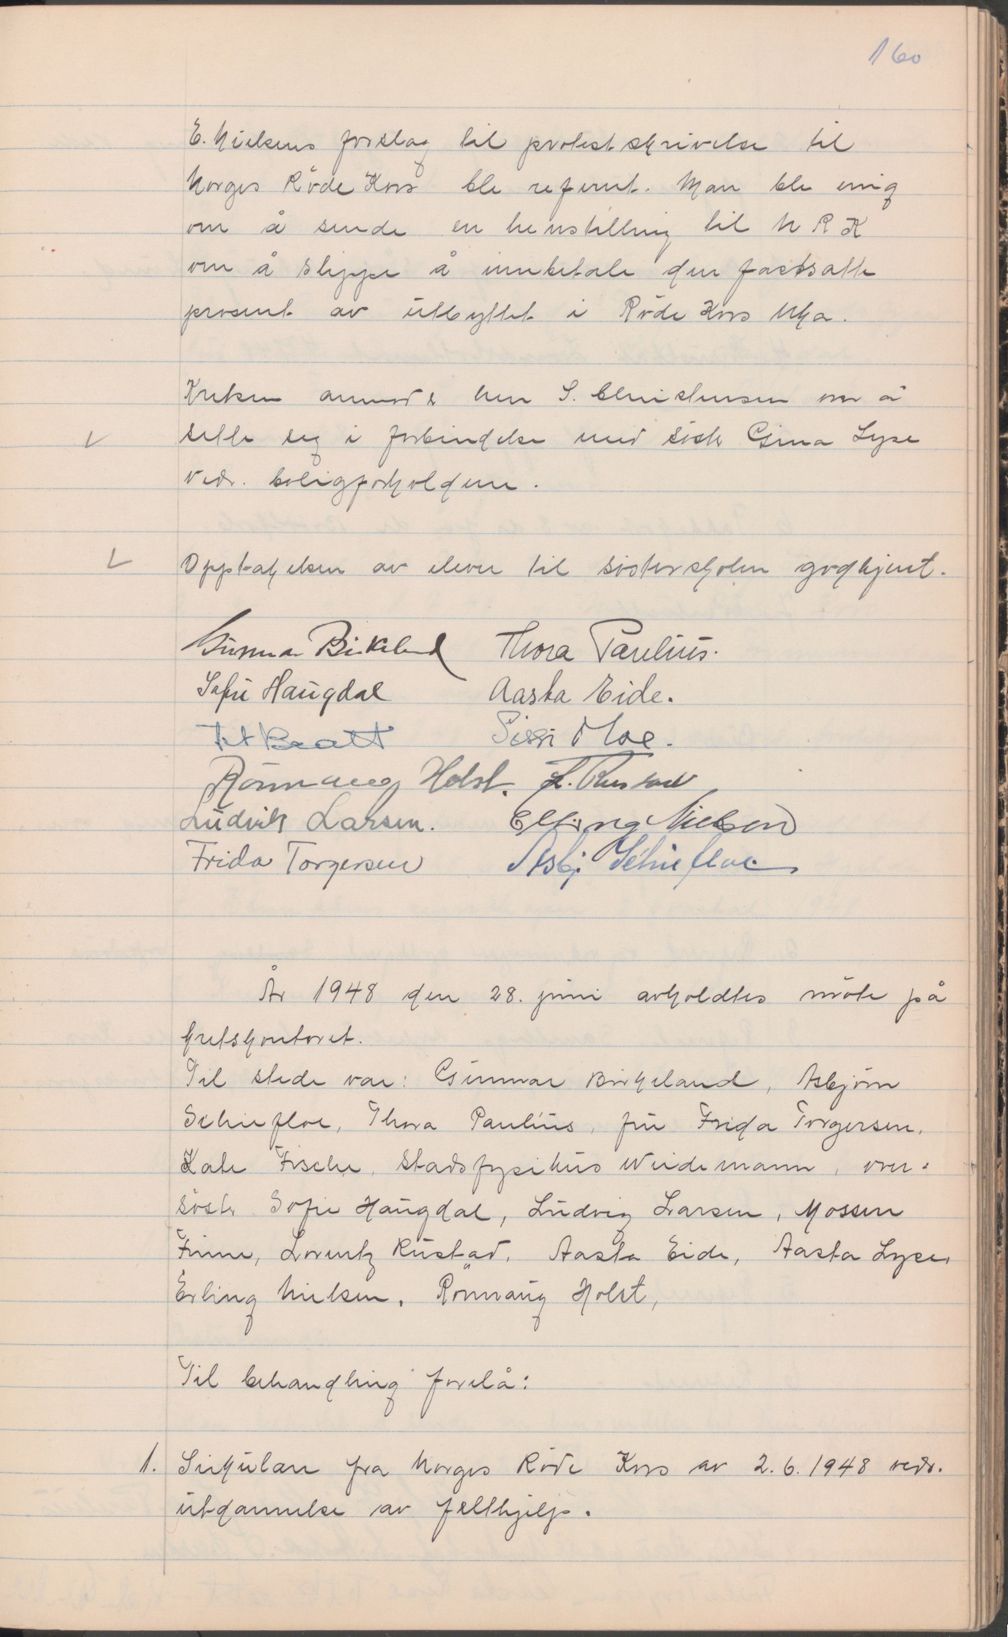 160
E. Nielsens forslag til protestskrivelse til
Norges Røde Kors ble referert. Man ble enig
om å sende en henstilling til N R K
om å slippe å innbetale den fastsatte
prosent av utbyttet i Røde Kors Uka.
Kretsen anmodet herr S. Christensen om å
sette seg i forbindelse med søster Gina Lyse
vedr. boligforholdene.
Opptakelsen av elever til søsterskolen godkjent.
Gunnar Birkeland Thora Paulius.
Sofie Haugdal Aasta Eide.
Sissi Moe.
Rønnaug Holst. L. Rustad
Ludvik Larsen. Erling Nielsen
Frida Torgersen Asbj. Schiefloe
År 1948 den 28. juni avholdtes møte på
kretskontoret.
Til stede var: Gunnar Birkeland, Asbjørn
Schiefloe, Thora Paulius, fru Frida Torgersen,
Kate Fische, Stadsfysikus Weidemann, over-
søster Sofie Haugdal, Ludvig Larsen, Mossen
Finne, Lorentz Rustad, Aasta Eide, Aasta Lyse,
Erling Nielsen, Rønnaug Holst,
Til behandling forelå:
1. Sirkulære fra Norges Røde Kors av 2.6.1948 vedr.
utdannelse av felthjelp.